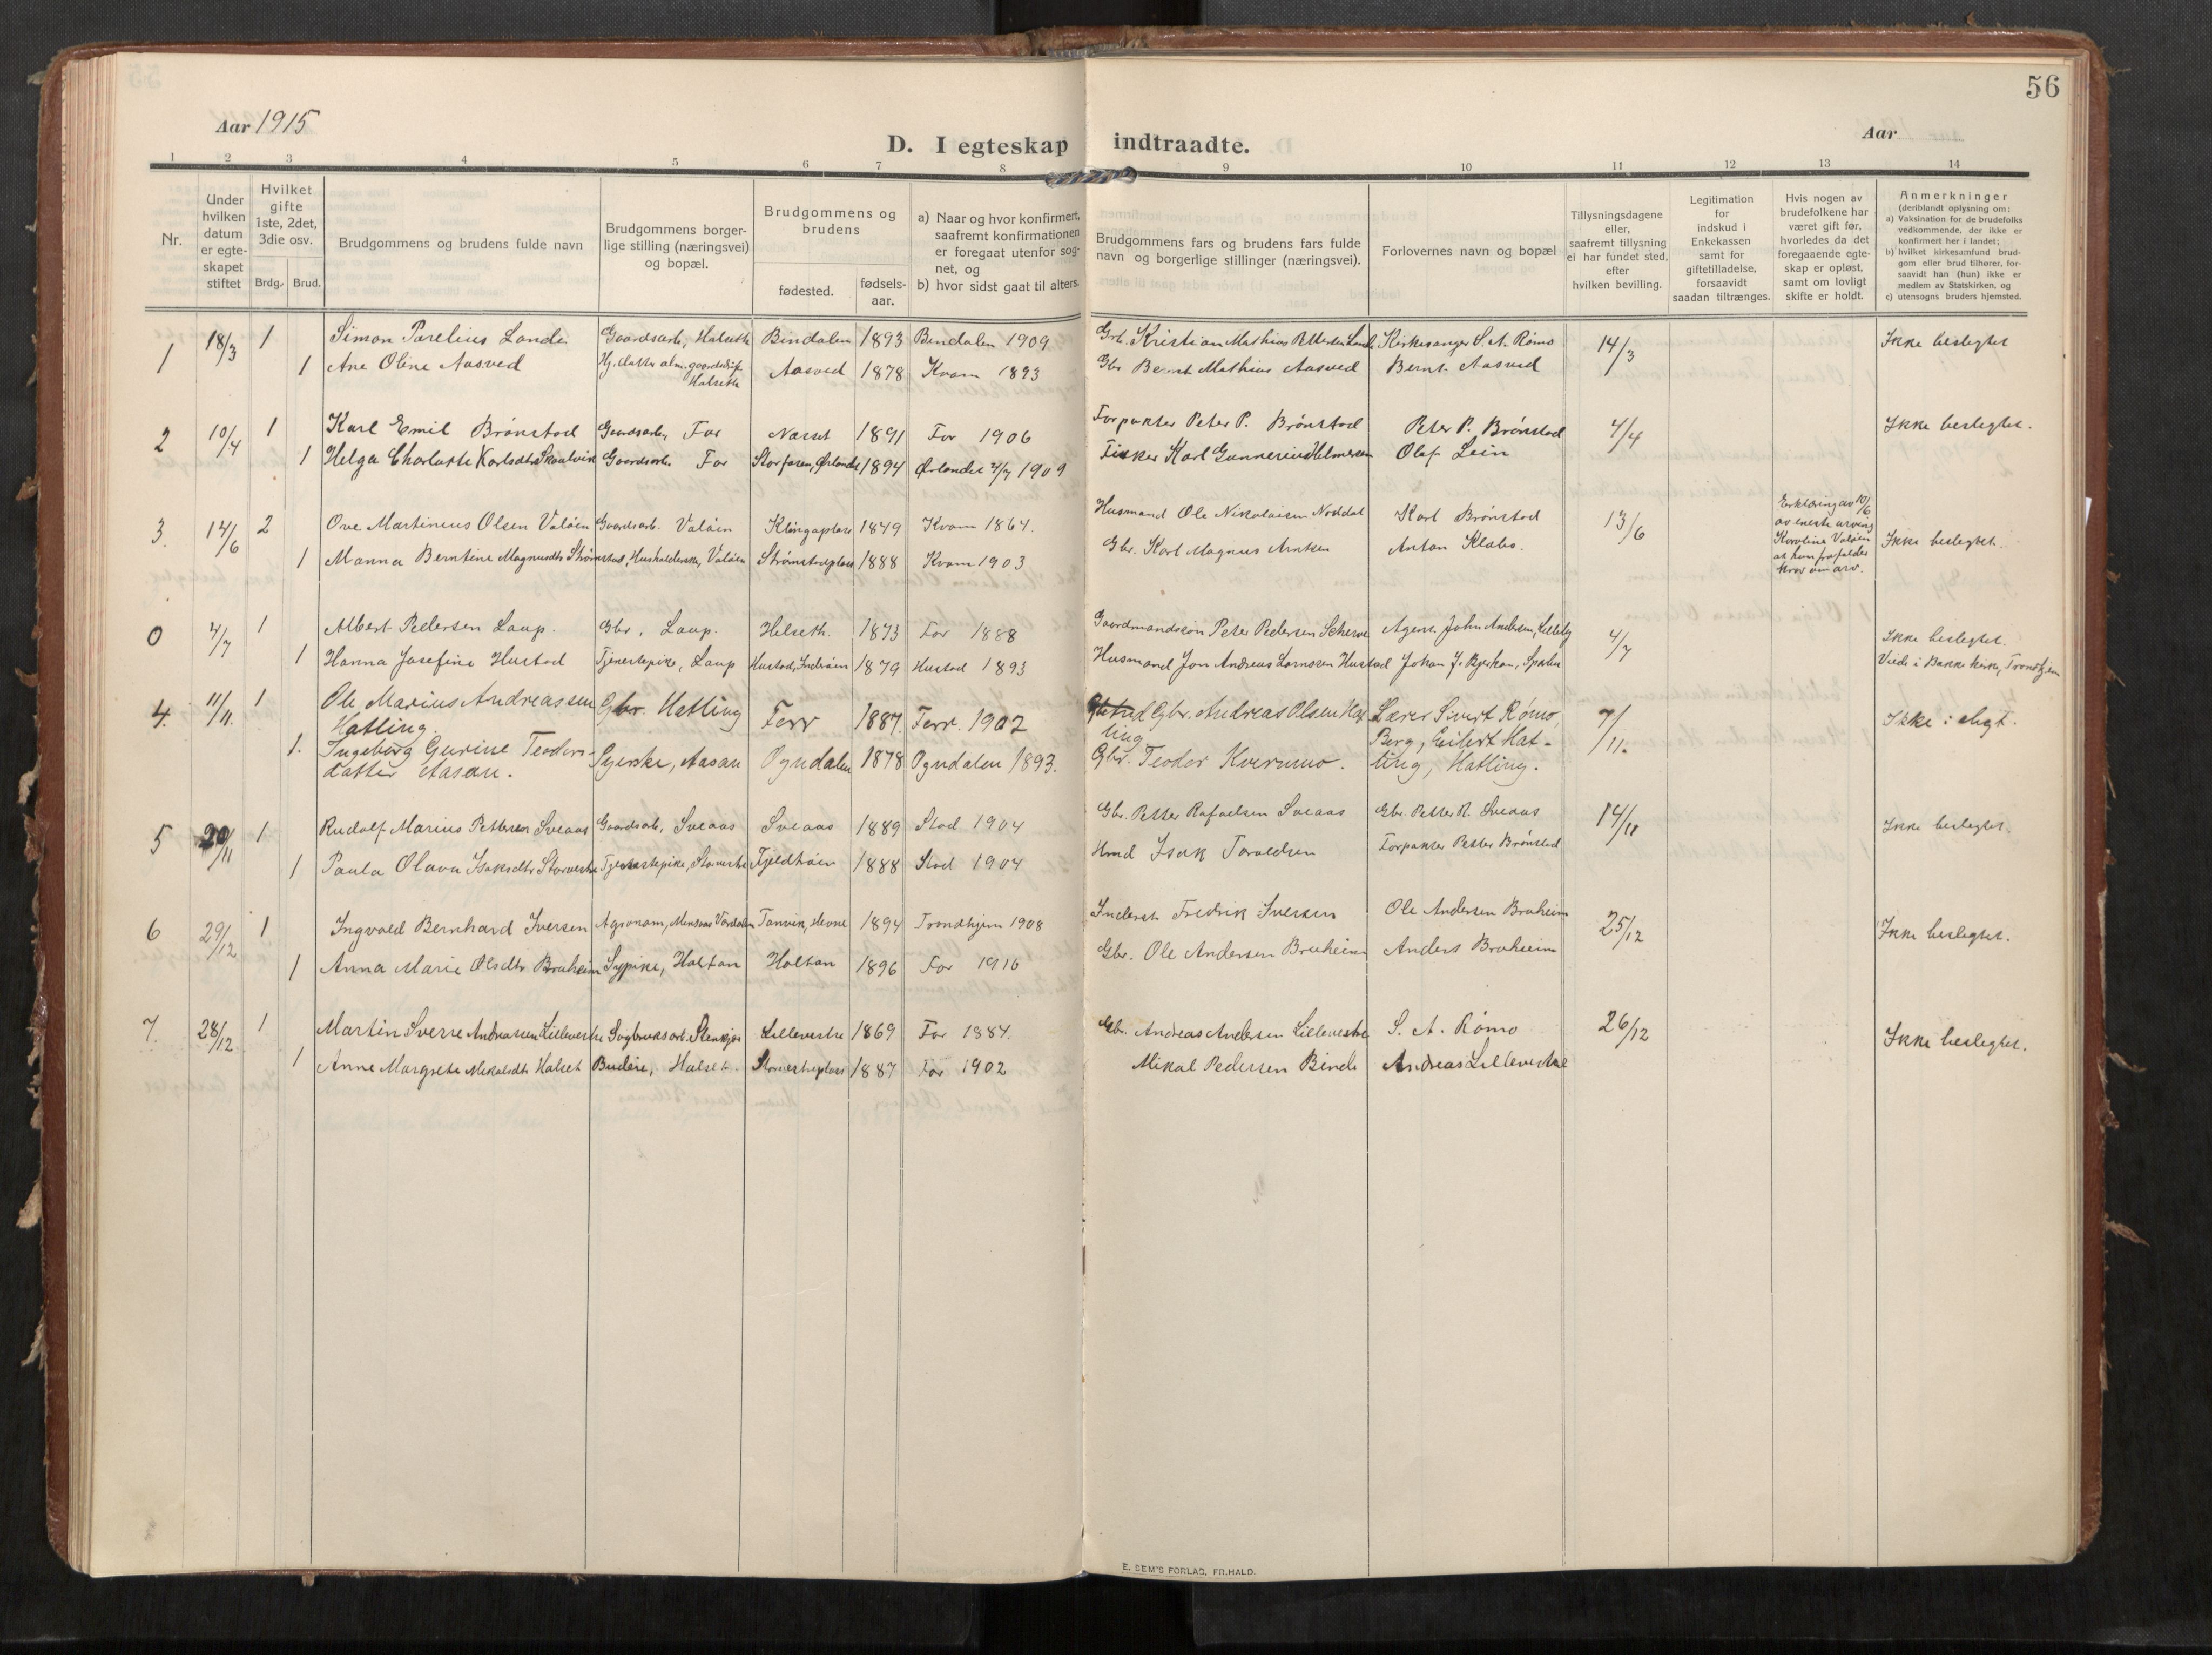 56
Aar 1915
Aar
D. I egteskap indtraadte.
1 2 3 4 5 6 7 8 9 10 11 12 13 14
Nr.
Under hvilken datum er egte- skapet stiftet
Hvilket gifte 1ste, 2det, 3die osv.
Brdg. Brud.
Brudgommens og brudens fulde navn
Brudgommens borger- lige stilling (næringsvei) og bopæl.
Brudgommens og brudens
fødested.
fødsels- aar.
a) Naar og hvor konfirmert, saafremt konfirmationen er foregaat utenfor sog- net, og
b) hvor sidst gaat til alters.
Brudgommens fars og brudens fars fulde navn og borgerlige stillinger (næringsvei).
Forlovernes navn og bopæl
Tillysningsdagene eller, saafremt tillysning ei har fundet sted, efter hvilken bevilling.
Legitimation for indskud i Enkekassen samt for giftetilladelse, forsaavidt saadan tiltrænges.
Hvis nogen av brudefolkene har været gift før, hvorledes da det foregaaende egte- skap er opløst, samt om lovligt skifte er holdt.
Anmerkninger (deriblandt oplysning om:
a) Vaksination for de brudefolks vedkommende, der ikke er konfirmert her i landet;
b) hvilket kirkesamfund brud- gom eller brud tilhører, for- saavidt han (hun) ikke er medlem av Statskirken, og
c) utensogns bruders hjemsted.
1 18/3 1 Simon Parelius Lande Gaardsarb. Halseth Bindalen 1893 Bindalen 1909 Gbr. Kristian Mathias Pettersen Lande Kirkesanger S. A. Rømo 14/3 Ikke beslegtet
1 Ane Oline Aasved Hj. datter alm. gaardsdrift Halseth Aasved 1878 Kvam 1893 Gbr Bernt Mathias Aasved Bernt Aasved
2 10/4 1 Karl Emil Brønstad Gaardsarb. For Næsset 1891 For 1906 Forpakter Peter P. Brønstad Peter P. Brønstad 4/4 Ikke beslegtet.
1 Helga Charlotte Karlsdtr Skaalvik Gaardsarb. For Storfosen, Ørlandet 1894 Ørlandet 4/7 1909 Fisker Karl Gunnerius Helmersen Olaf Lein
3. 14/6 2 Ove Martinius Olsen Valøen Gaardsarb. Valøen Klingaplass 1849 Kvam 1864. Husmand Ole Nikolaisen Noddal Karl Brønstad 13/6 Erklæring av 10/6 av eneste arving Karoline Valøen at hun frafalder krav om arv. Ikke beslegtet.
1 Manna Berntine Magnusdtr Strømstad, Husholderske, Valøen Strømstadplass 1888 Kvam 1903 Gbr. Karl Magnus Arntsen Anton Klabo.
0 4/7 1 Albert Pedersen Laup. Gbr, Laup. Helseth. 1873 For 1888 Gaardmandssøn Peter Pedersen Scherve Agent John Andersen, Lilleby 4/7 Ikke beslegtet.
1 Hanna Josefine Hustad Tjenestepike, Laup Hustad, Inderøen 1879 Hustad 1893 Husmand Jon Andreas Larnssen Hustad Johan J. Bjerkan, Sparbu Viede i Bakke kirke, Trondhjem
4. 11/11. 1 Ole Marius Andreassen Hatling. Gbr. Hatling Ferr 1887. Ferr. 1902 Gbr. Andreas Olsen Hatling Lærer Sivert Rømo, Berg, Eilert Hatling, Hatling. 7/11. Ikke i slegt.
1. Ingeborg Gurine Teodorsdatter Aasan. Syerske, Aasan Ogndalen 1878 Ogndalen 1893. Gbr. Teodor Kvernmo.
5 20/11 1 Rudolf Marius Pettersen Sveaas Gaardsarb, Sveaas Sveaas 1889 Stod 1904 Gbr. Petter Rafaelsen Sveaas Gbr. Petter R. Sveaas 14/11 Ikke beslegtet.
1 Paula Olava Isaksdtr Storvestre Tjenestepike, Storvestre Fjeldhøien 1888 Stod 1904 Hmd Isak Toraldsen Forpakter Petter Brønstad
6 29/12 1 Ingvald Bernhard Iversen Agronom, Mensaas Værdalen Tanvik, Hevne 1894 Trondhjem 1908 Inderst Fredrik Iversen Ole Andersen Bruheim 25/12 Ikke beslegtet.
1 Anna Marie Olsdtr Bruheim Sypike, Holtan Holtan 1896 For 1910 Gbr. Ole Andersen Bruheim Anders Bruheim
7. 28/12 1 Martin Sverre Andreassen Lillevestre Sagbruksarb. Stenkjær Lillevestre 1869 For 1884. Gbr. Andreas Andersen Lillevestre S. A. Rømo 26/12 Ikke beslegtet.
1 Anne Margrete Mikalsdtr Halset Budeie, Halset. Storvestreplass 1887 For 1902 Mikal Pedersen Binde Andreas Lillevestre
E. SEM'S FORLAG, FR.HALD.